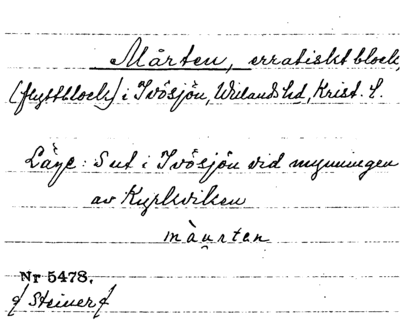 Mårten, erratiskt block,
(flyttblock) i Ivösjön, Willands hd, Krist. l.
Läge: Sut i Ivösjön vid mynningen
av Kyrkviken
màu̯rten
Nr 5478.
Steiner